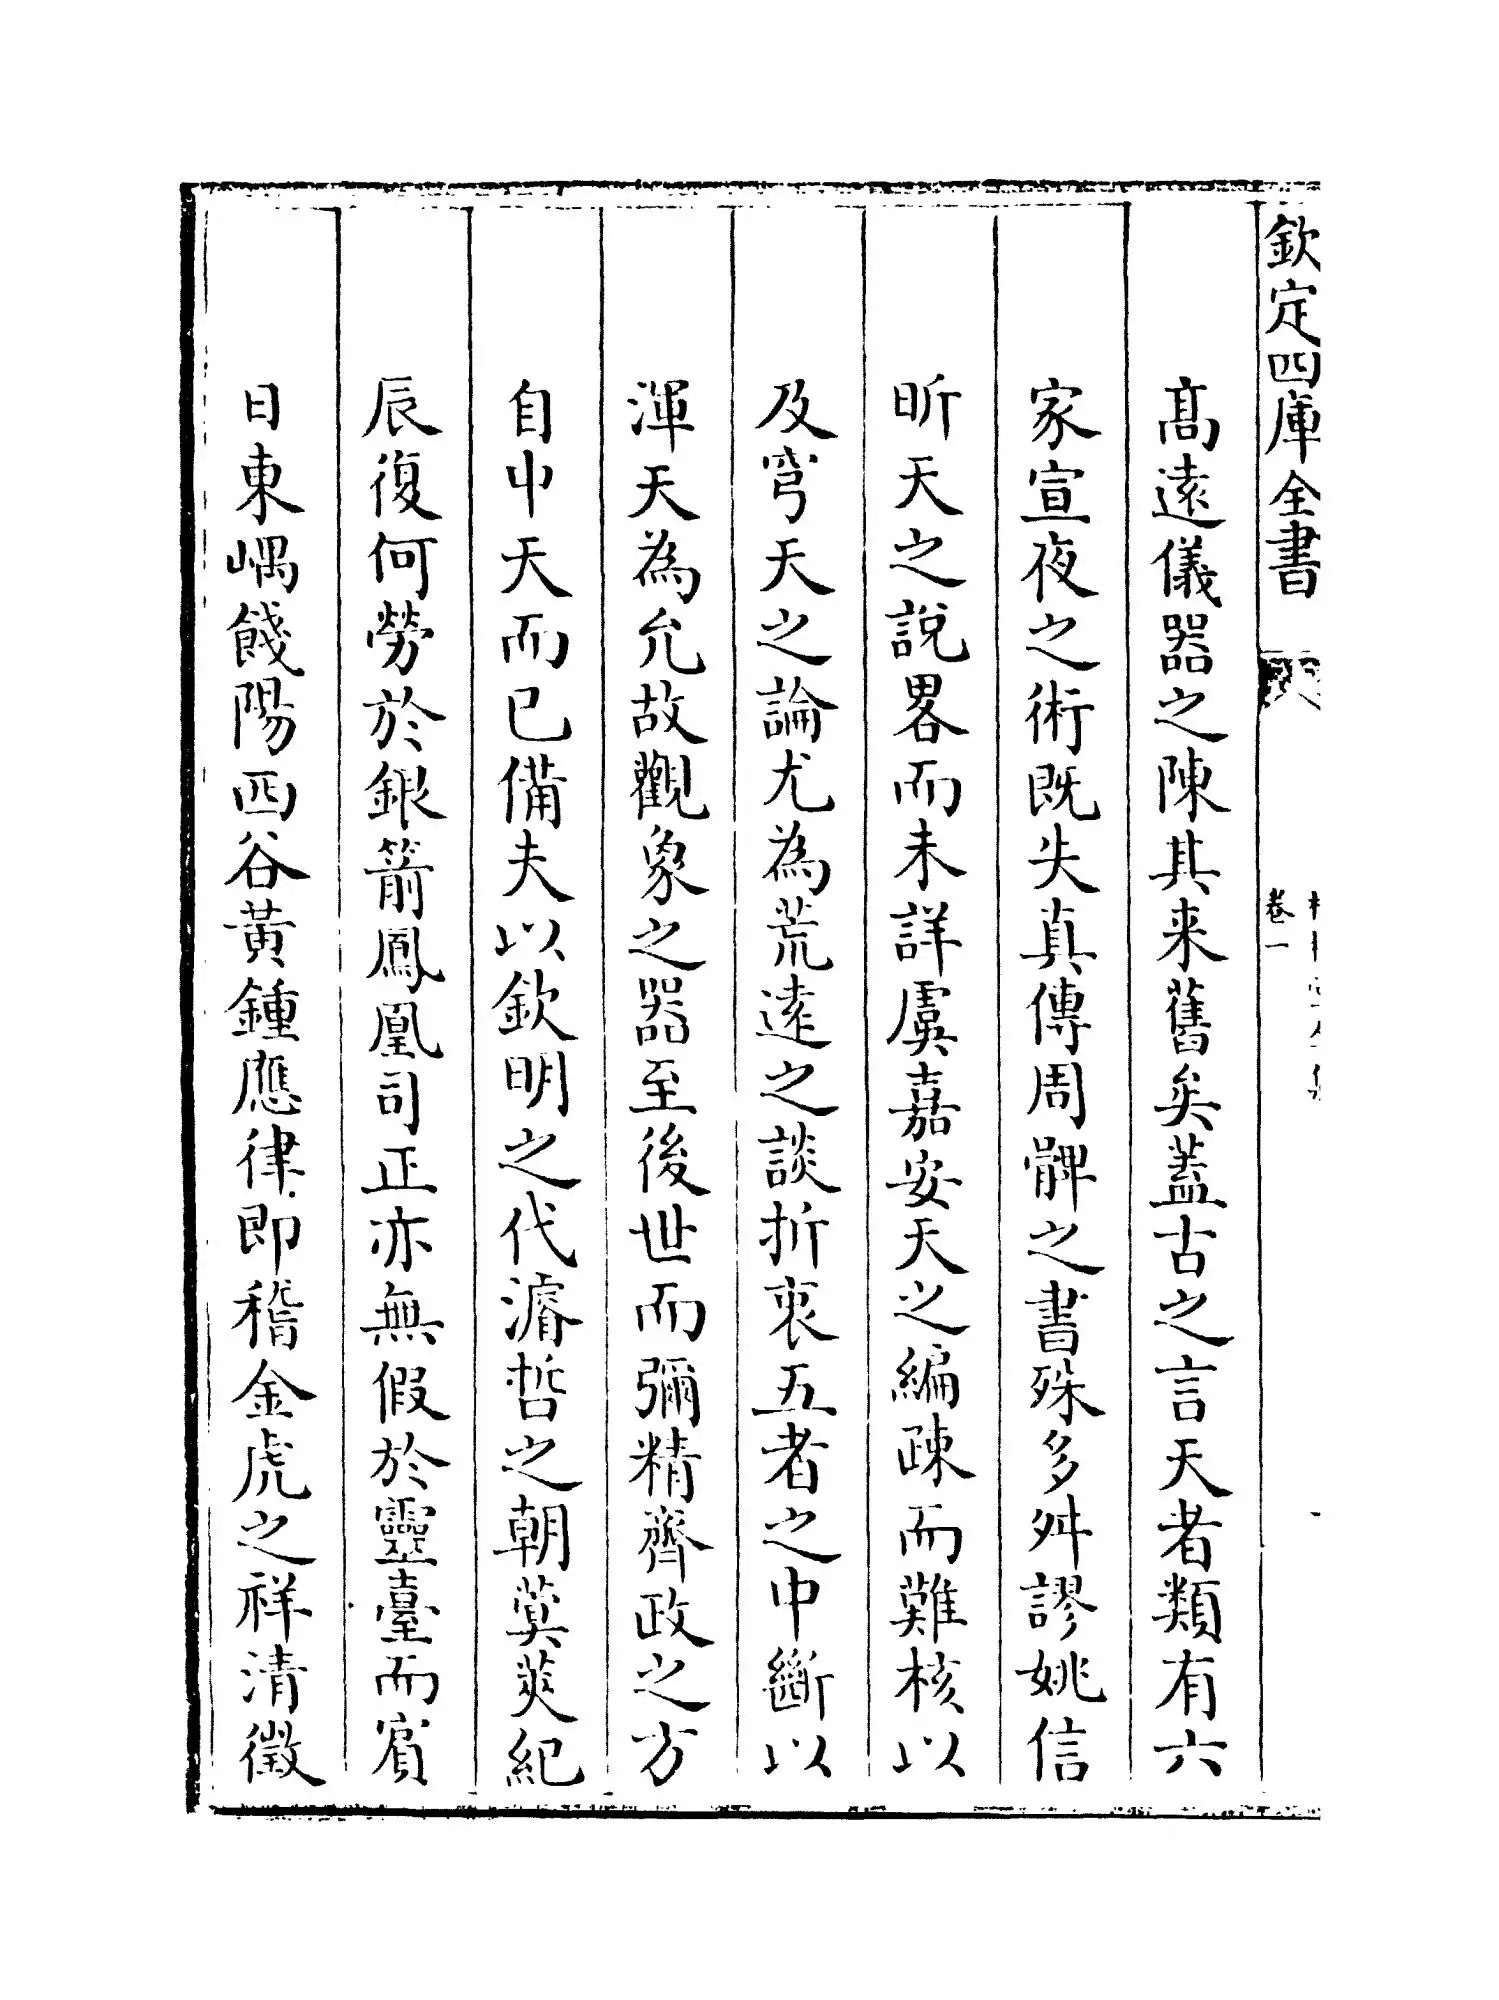 欽定四庫全書
卷一
高遠儀器之陳其来舊矣蓋古之言天者類有六
家宣夜之術既失真傳周髀之書殊多舛謬姚信
昕天之說畧而未詳虞嘉安天之編疎而難核以
及穹天之論尤為荒遠之談折衷五者之中斷以
渾天為允故觀象之器至後世而彌精齊政之方
自中天而已備夫以欽明之代濬哲之朝蓂莢紀
辰復何勞於銀箭鳳凰司正亦無假於靈臺而賓
日東嵎餞陽西谷黃鍾應律即稽金虎之祥清徵